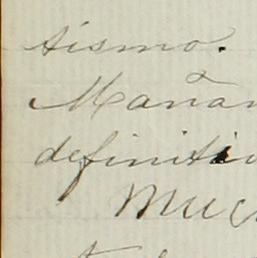 tismo.
Mañan
definitiv
Muc